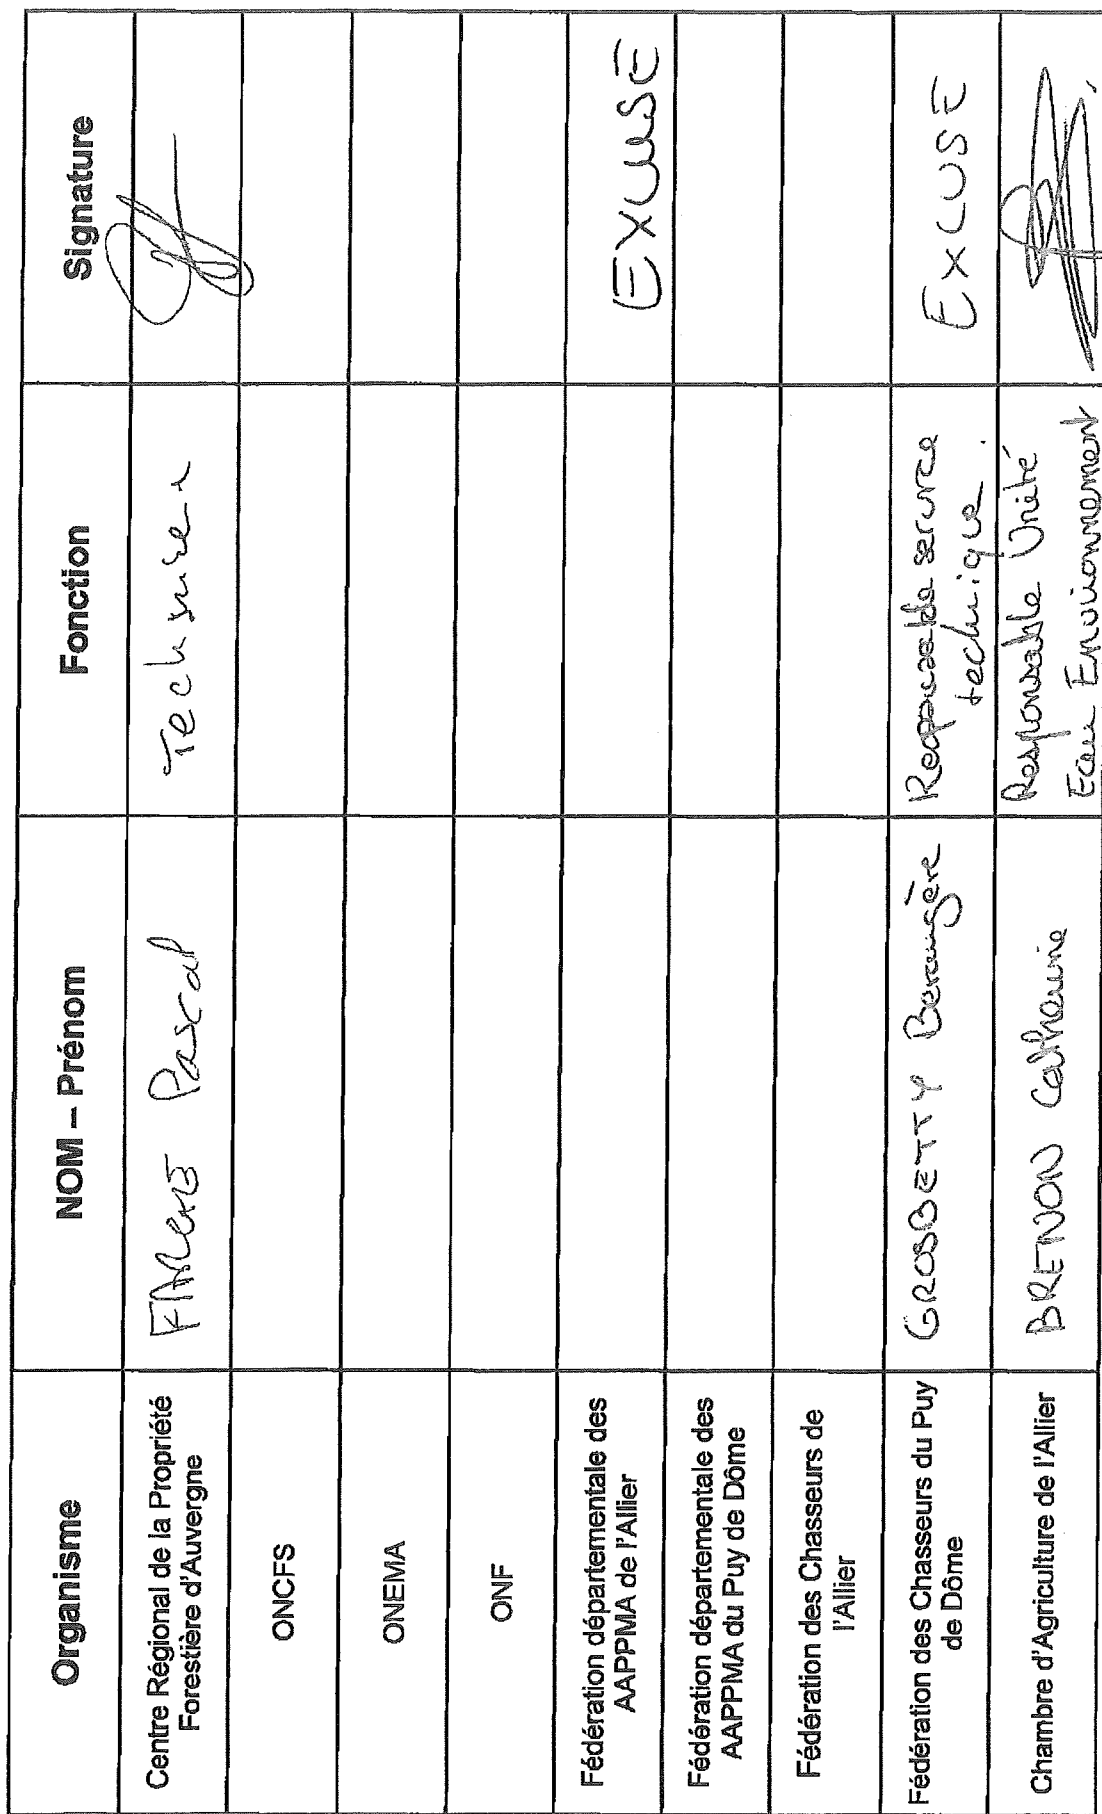 Organisme NOM – Prénom Fonction Signature
Centre Régional de la Propriété
Forestière d'Auvergne
Pascal
ONCFS
ONEMA
ONF
Fédération départementale des
AAPPMA de l'Allier
EXCUSE
Fédération départementale des
AAPPMA du Puy de Dôme
Fédération des Chasseurs de
l'Allier
Fédération des Chasseurs du Puy
de Dôme
GROSBETTY Berangère
Responsable service
technique.
EXCUSE
Chambre d'Agriculture de l'Allier
BRENON Catherine
Responsable Unité
Eau Environnement